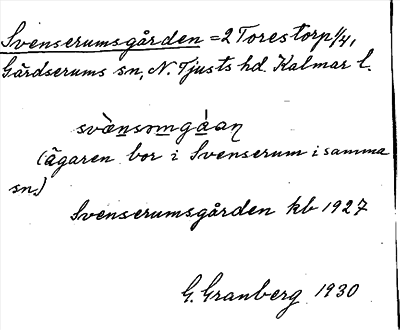 Svenserumsgården = 2 Torestorp 1/4,
Gärdserums sn, N. Tjusts hd. Kalmar l.
svæ̀nsomgáaɳ
(Ägaren bor i Svenserum i samma
sn.)
Svenserumsgården kb 1927
G. Granberg 1930